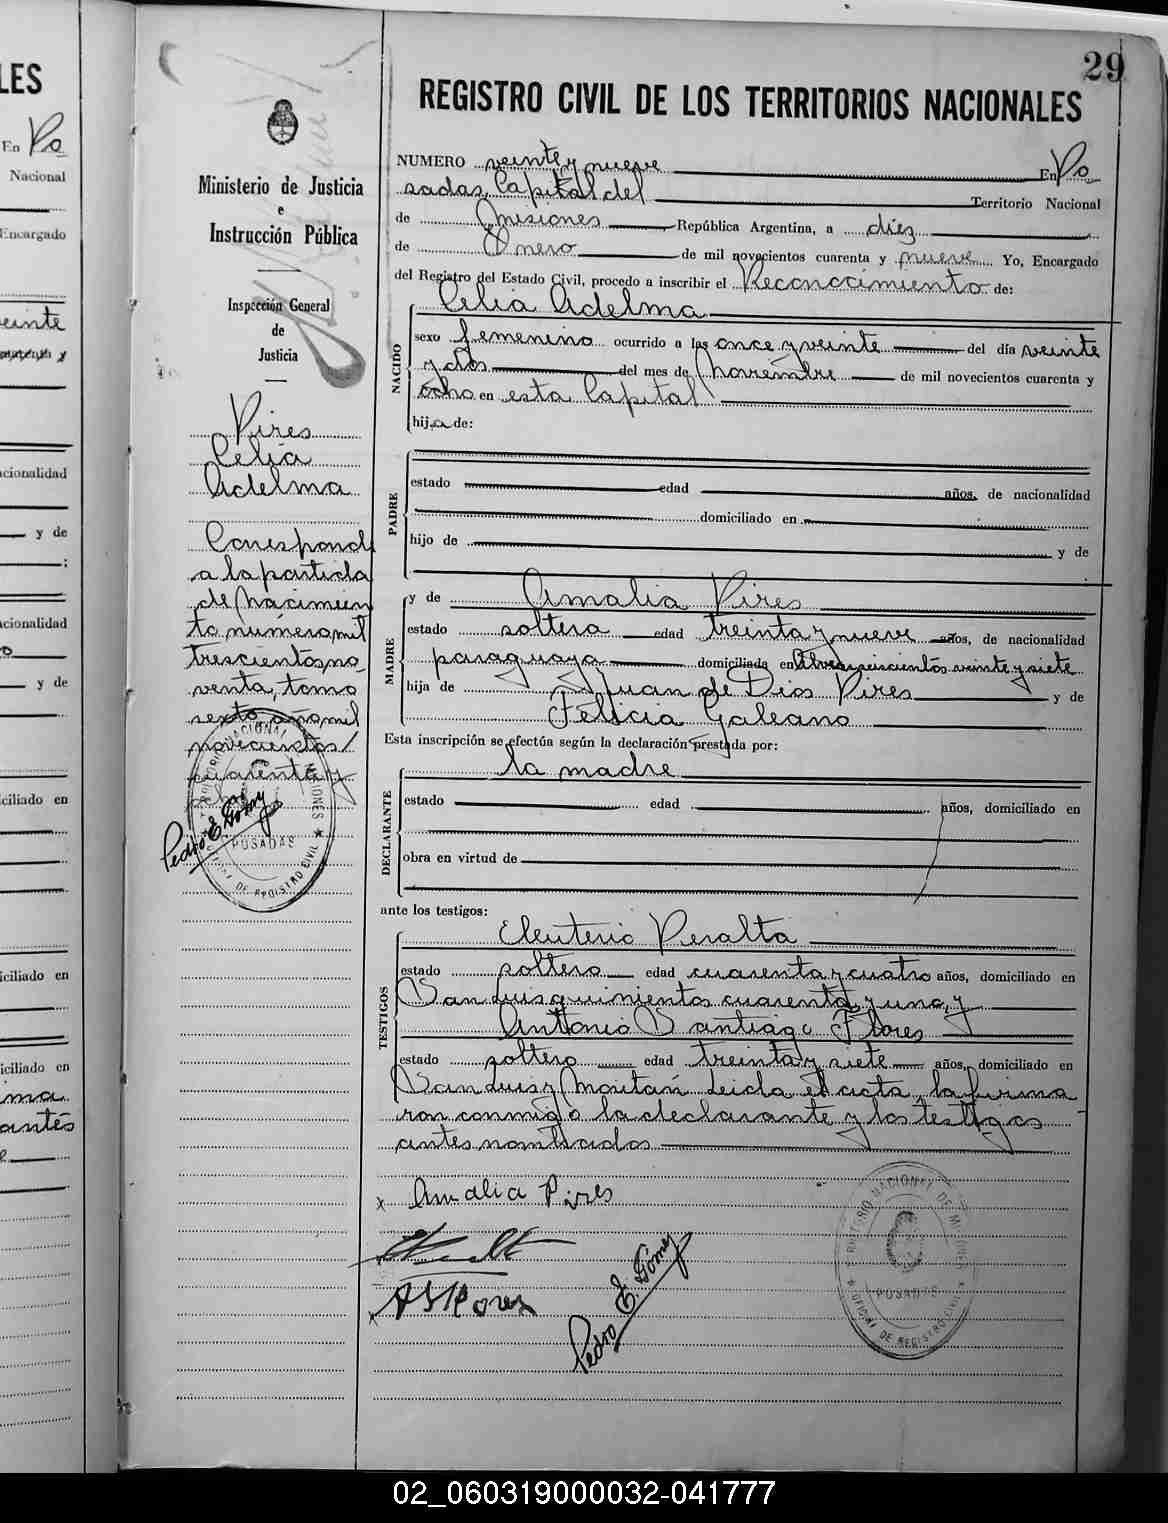 29
REGISTRO CIVIL DE LOS TERRITORIOS NACIONALES
Ministerio de Justicia
e
Instrucción Pública
Inspección General
de
Justicia
Pires
Celia
Adelma
Corresponde
a la partida
de nacimien
to número mil
trescientos no
venta, tomo
sexto, año mil
novecientos
cuarenta y
ocho
Pedro E. Gómez
TERRITORIO NACIONAL DE MISIONES
POSADAS
OFICINA DE REGISTRO CIVIL
NUMERO veinte y nueve En Po
sadas, Capital del Territorio Nacional
de Misiones República Argentina, a diez
de Enero de mil novecientos cuarenta y nueve Yo, Encargado
del Registro del Estado Civil, procedo a inscribir el Reconocimiento de:
Celia Adelma
NACIDO
sexo femenino ocurrido a las once y veinte del día veinte
y dos del mes de noviembre de mil novecientos cuarenta y
ocho en esta Capital
hija de:
PADRE
estado edad años, de nacionalidad
domiciliado en
hijo de y de
MADRE
y de Amalia Pires
estado soltera edad treinta y nueve años, de nacionalidad
paraguaya domiciliada en seiscientos veinte y siete
hija de Juan de Dios Pires y de
Felicia Galeano
Esta inscripción se efectúa según la declaración prestada por:
la madre
DECLARANTE
estado edad años, domiciliado en
obra en virtud de
ante los testigos:
TESTIGOS
Eleuterio Peralta
estado soltero edad cuarenta y cuatro años, domiciliado en
San Luis quinientos cuarenta y uno, y
Antonio Santiago Flores
estado soltero edad treinta y siete años, domiciliado en
San Luis y Leida el acta, la firma
ron conmigo la declarante y los testigos
antes nombrados
x Amalia Pires
Pedro E. Gómez
TERRITORIO NACIONAL DE MISIONES
POSADAS
OFICINA DE REGISTRO CIVIL
LES
En Po
Nacional
Encargado
veinte
cionalidad
y de
cionalidad
y de
ciliado en
ciliado en
iciliado en
02_060319000032-041777